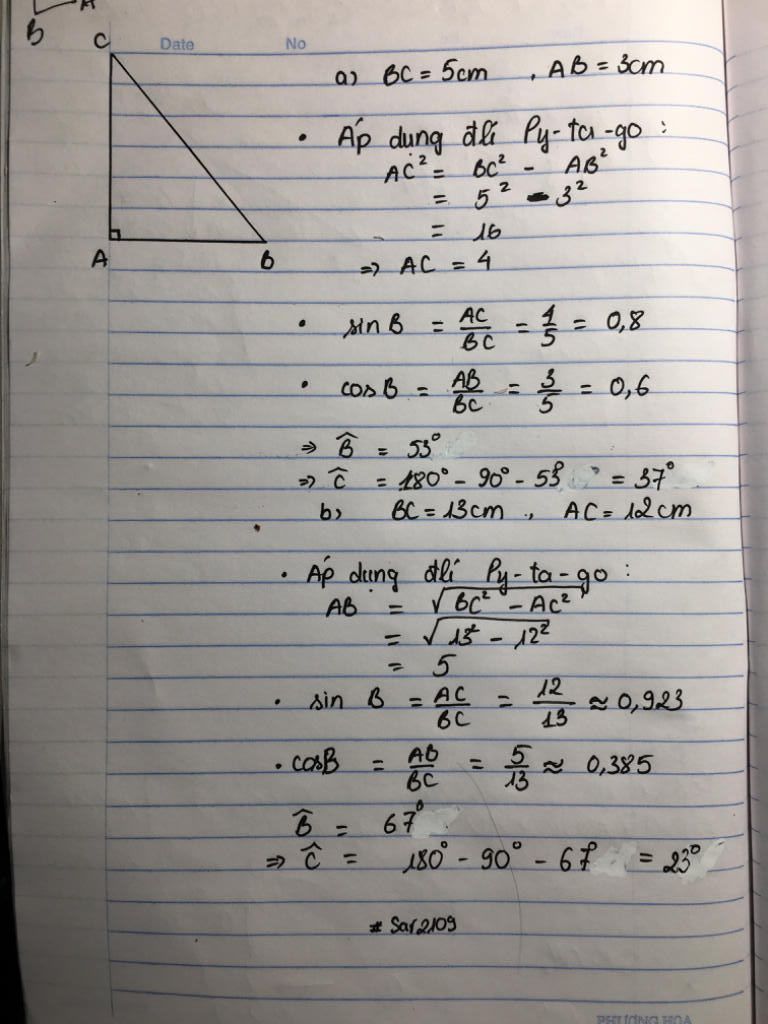 B A
Date No
C
A B
a) BC = 5cm , AB = 3cm
• Áp dụng đlí Py-ta-go :
AC² = BC² - AB²
= 5² - 3²
= 16
=> AC = 4
• sin B = AC/BC = 4/5 = 0,8
• cos B = AB/BC = 3/5 = 0,6
=> B̂ = 53°
=> Ĉ = 180° - 90° - 53° = 37°
b) BC = 13cm , AC = 12cm
• Áp dụng đlí Py-ta-go :
AB = √(BC² - AC²)
= √(13² - 12²)
= 5
• sin B = AC/BC = 12/13 ≈ 0,923
• cosB = AB/BC = 5/13 ≈ 0,385
B̂ = 67°
=> Ĉ = 180° - 90° - 67° = 23°
# Sar2109
PHƯƠNG HOA